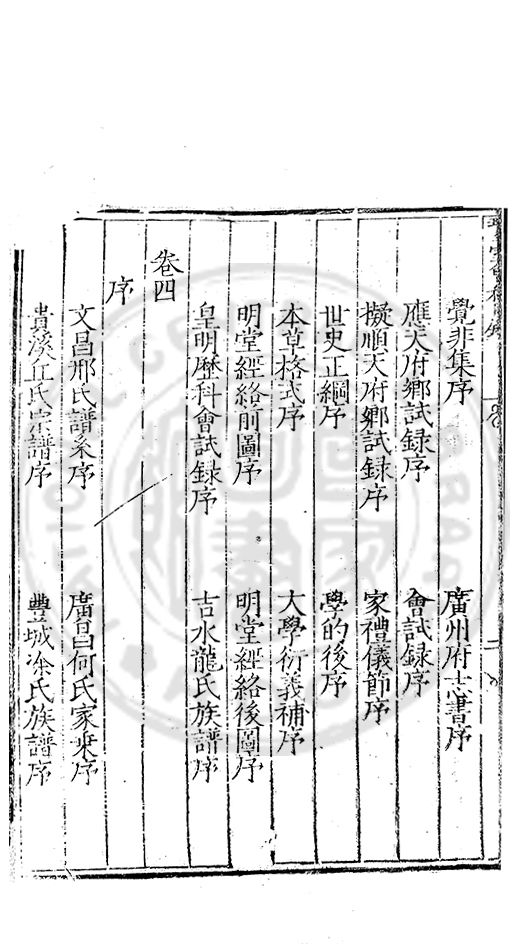 覺非集序 廣州府志書序
應天府鄉試録序 會試録序
擬順天府鄉試録序 家禮儀節序
世史正綱序 學的後序
本草格式序 大學衍義補序
明堂經絡前圖序 明堂經絡後圖序
皇明歷科會試録序 吉水龍氏族譜序
卷四
序
文昌邢氏譜系序 廣昌何氏家乘序
貴溪丘氏宗譜序 豐城凃氏族譜序